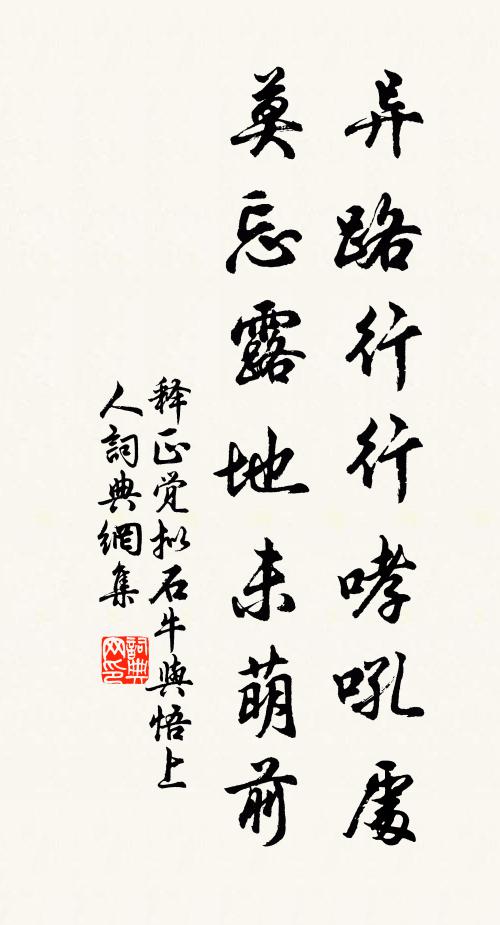 异路行行哮吼處
莫忘露地未萌前
释正觉拟石牛與悟上
人詞典網集
詞典
网印